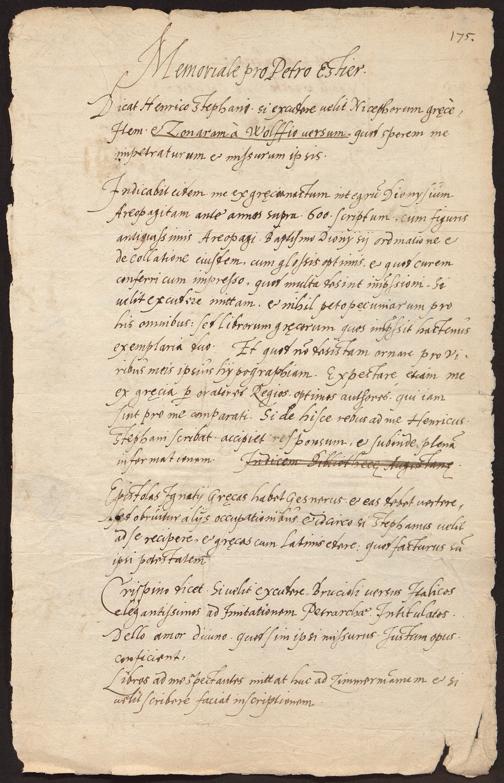 175.
Memoriale pro Petro Estier.
Dicat Henrico Stephano, si excudere velit Nicephorum gręcè,
Item & Zonaram à Wolffio versum, quod sperem me
impetraturum & missurum ipsis.
Indicabit eidem me ex grecia nactum integrum Dionysium
Areopagitam ante annos supra 600. scriptum, cum figuris
antiquissimis Areopagi. Baptismo Dionysij ordinatione &
decollatione eiusdem, cum glossis optimis, & quod curem
conferri cum impresso, quod multa desint impssioni. Si
velit excudere mittam, & nihil peto pecuniarum pro
his omnibus: sed librorum gręcorum quos impssit hactenus
exemplaria duo. Et quod nõ desistam ornare pro vi-
ribus meis ipsius typographiam. Expectare etiam me
ex gręcia p oratores Regios optimos authores, qui iam
sint pro me comparati. Si de hisce rebus ad me Henricus
Stephani scribat, accipiet responsum, & subinde plenã
informationem. Indicem Bibliothecę Augustanę
Epistolas Ignatij Gręcas habet Gesnerus & eas debet vertere,
sed obruitur alijs occupationibus, & idcirco si Stephanus velit
ad se recipere, & gręcas cum latinis edere: quod facturus sit
ipsi potestatem
Crispino dicet. Si velit excudere Brucioli versus Italicos
elegantissimos ad Imitationem Petrarchæ Intitulatos.
Dello amor divino, quod sim ipsi missurus. Justum opus
conficient.
Libros ad me spectantes mittat huc ad Zimmermanum & si
velit scribere faciat inscriptionem.